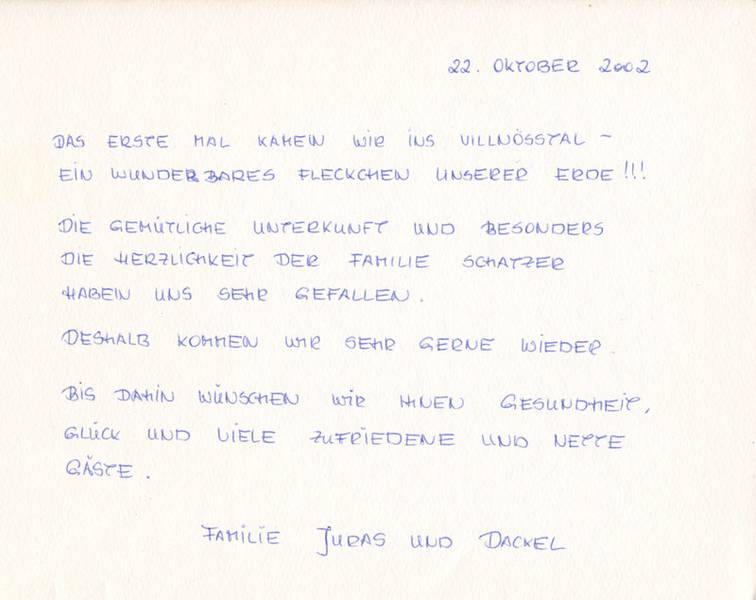 22. OKTOBER 2002
DAS ERSTE MAL KAMEN WIR INS VILLNÖSSTAL -
EIN WUNDERBARES FLECKCHEN UNSERER ERDE!!!
DIE GEMÜTLICHE UNTERKUNFT UND BESONDERS
DIE HERZLICHKEIT DER FAMILIE SCHATZER
HABEN UNS SEHR GEFALLEN.
DESHALB KOMMEN WIR SEHR GERNE WIEDER.
BIS DAHIN WÜNSCHEN WIR IHNEN GESUNDHEIT,
GLÜCK UND VIELE ZUFRIEDENE UND NETTE
GÄSTE.
FAMILIE JURAS UND DACKEL